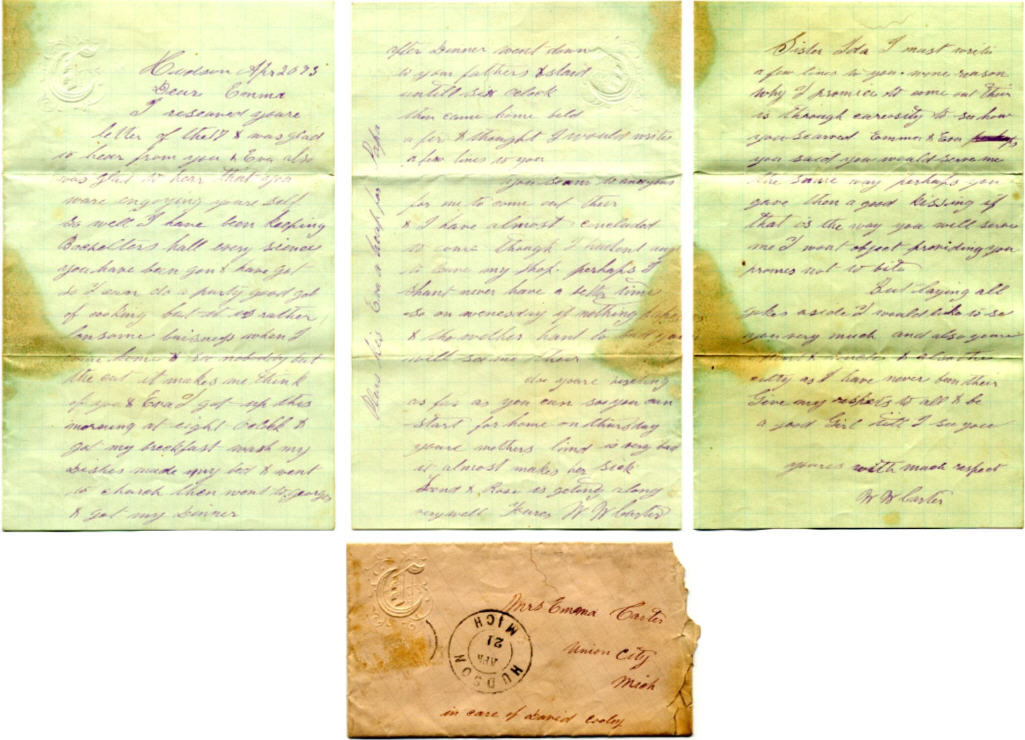 Hudson Apr 20 73
Dear Emma
I reseaved youre
letter of the 17 & was glad
to hear from you & Eva also
was glad to hear that you
ware engoying youre self
so well I have been keeping
Bachelders hall every sience
you have ben gon & have got
so I can do a party good gob
of cooking but it is rather
lonsome buisness when I
come home & se nobody but
the cat it makes me think
of you & Eva I got up this
morning at eight oclok &
got my breckfast wash my
Dishes made my bed & went
to church then went to georges
& got my Dinner
after Dinner went down
to your fathers & staid
untill six oclok
then came home
a fir & thought I would write
a few lines to you
you seam to
for me to come out their
& I have almost concluded
to come though I
to leave my shop. perhaps I
shant never have a better time
so on wenesday if nothing
& the wether hant to
will see me their
do youre visiting
as fas as you can so you can
start for home on thursday
youre mothers limb is very bad
it almost makes her sick
& Rose is geting along
very well Youres W W Carter
Eva a kiss for Papa
Sister Ida I must write
a few lines to you. wone reason
why I promice to come out their
is through cureosity to se how
you searved Emma & Eva
you said you would serve me
the same way perhaps you
gave them a good kissing if
that is the way you will serve
me I wont object providing you
promes not to bite
But laying all
jokes aside I would like to se
you very much and also youre
& also the
citty as I have never ben their
Give my respets to all & be
a good Girl till I see you
youres with much respect
W W Carter
C
Mrs Emma Carter
Union City
Mich
in care of David Cooley
HUDSON
APR
21
MICH